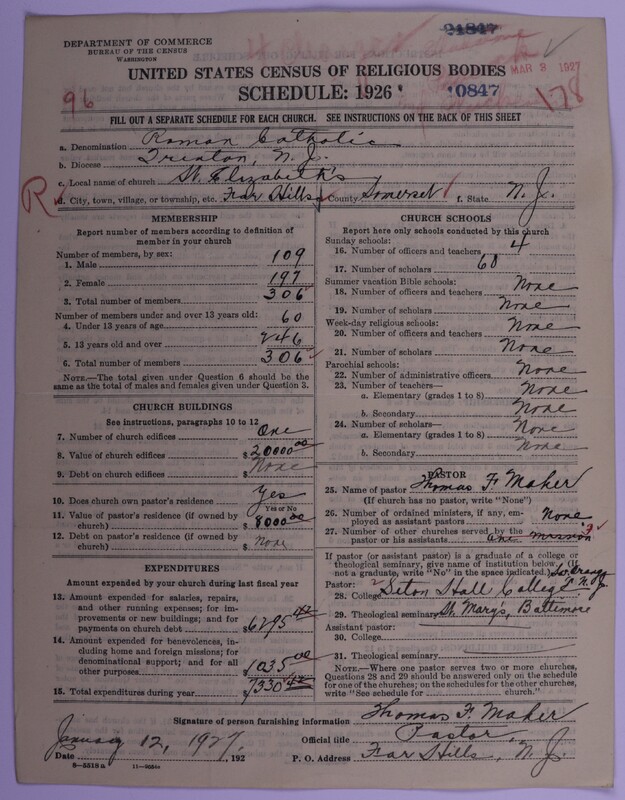 DEPARTMENT OF COMMERCE
BUREAU OF THE CENSUS
WASHINGTON
21847
UNITED STATES CENSUS OF RELIGIOUS BODIES
MAR 3 1927
SCHEDULE: 1926
0847
96
178
FILL OUT A SEPARATE SCHEDULE FOR EACH CHURCH. SEE INSTRUCTIONS ON THE BACK OF THIS SHEET
a. Denomination Roman Catholic
b. Diocese Trenton, N. J.
c. Local name of church St. Elizabeth's
R
d. City, town, village, or township, etc. Far Hills e. County Somerset f. State N. J.
MEMBERSHIP
Report number of members according to definition of
member in your church
Number of members, by sex:
1. Male 109
2. Female 197
3. Total number of members 306
Number of members under and over 13 years old:
4. Under 13 years of age 60
5. 13 years old and over 246
6. Total number of members 306
NOTE.—The total given under Question 6 should be the
same as the total of males and females given under Question 3.
CHURCH BUILDINGS
See instructions, paragraphs 10 to 12
7. Number of church edifices One
8. Value of church edifices $ 20000 00
9. Debt on church edifices $ None
10. Does church own pastor's residence Yes
Yes or No
11. Value of pastor's residence (if owned by
church) $ 8000 00
12. Debt on pastor's residence (if owned by
church) $ None
EXPENDITURES
Amount expended by your church during last fiscal year
13. Amount expended for salaries, repairs,
and other running expenses; for im-
provements or new buildings; and for
payments on church debt $ 6295
14. Amount expended for benevolences, in-
cluding home and foreign missions; for
denominational support; and for all
other purposes $ 1035 00
15. Total expenditures during year $ 7330
CHURCH SCHOOLS
Report here only schools conducted by this church
Sunday schools:
16. Number of officers and teachers 4
17. Number of scholars 60
Summer vacation Bible schools:
18. Number of officers and teachers None
19. Number of scholars None
Week-day religious schools:
20. Number of officers and teachers None
21. Number of scholars None
Parochial schools:
22. Number of administrative officers None
23. Number of teachers—
a. Elementary (grades 1 to 8) None
b. Secondary None
24. Number of scholars—
a. Elementary (grades 1 to 8) None
b. Secondary None
PASTOR
25. Name of pastor Thomas F. Maher
(If church has no pastor, write "None")
26. Number of ordained ministers, if any, em-
ployed as assistant pastors None
27. Number of other churches served by the
pastor or his assistants One mission
If pastor (or assistant pastor) is a graduate of a college or
theological seminary, give name of institution below. (If
not a graduate, write "No" in the space indicated.) So. Orange
Pastor: N. J.
28. College Seton Hall College
29. Theological seminary St. Mary's, Baltimore
Assistant pastor:
30. College
31. Theological seminary
NOTE.—Where one pastor serves two or more churches,
Questions 28 and 29 should be answered only on the schedule
for one of the churches; on the schedules for the other churches,
write "See schedule for church."
Signature of person furnishing information Thomas F. Maher
Official title Pastor
Date January 12, 1927, 192
P. O. Address Far Hills, N. J.
8—5518a 11—9554a